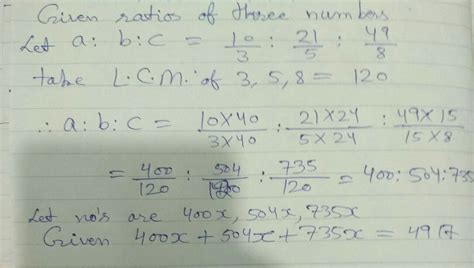 Given ratios of three numbers
Let a: b: c = 10/3 : 21/5 : 49/8
take L.C.M. of 3, 5, 8 = 120
∴ a: b: c = 10×40/3×40 : 21×24/5×24 : 49×15/15×8
= 400/120 : 504/120 : 735/120 = 400: 504: 735
Let no's are 400x, 504x, 735x
Given 400x + 504x + 735x = 4917